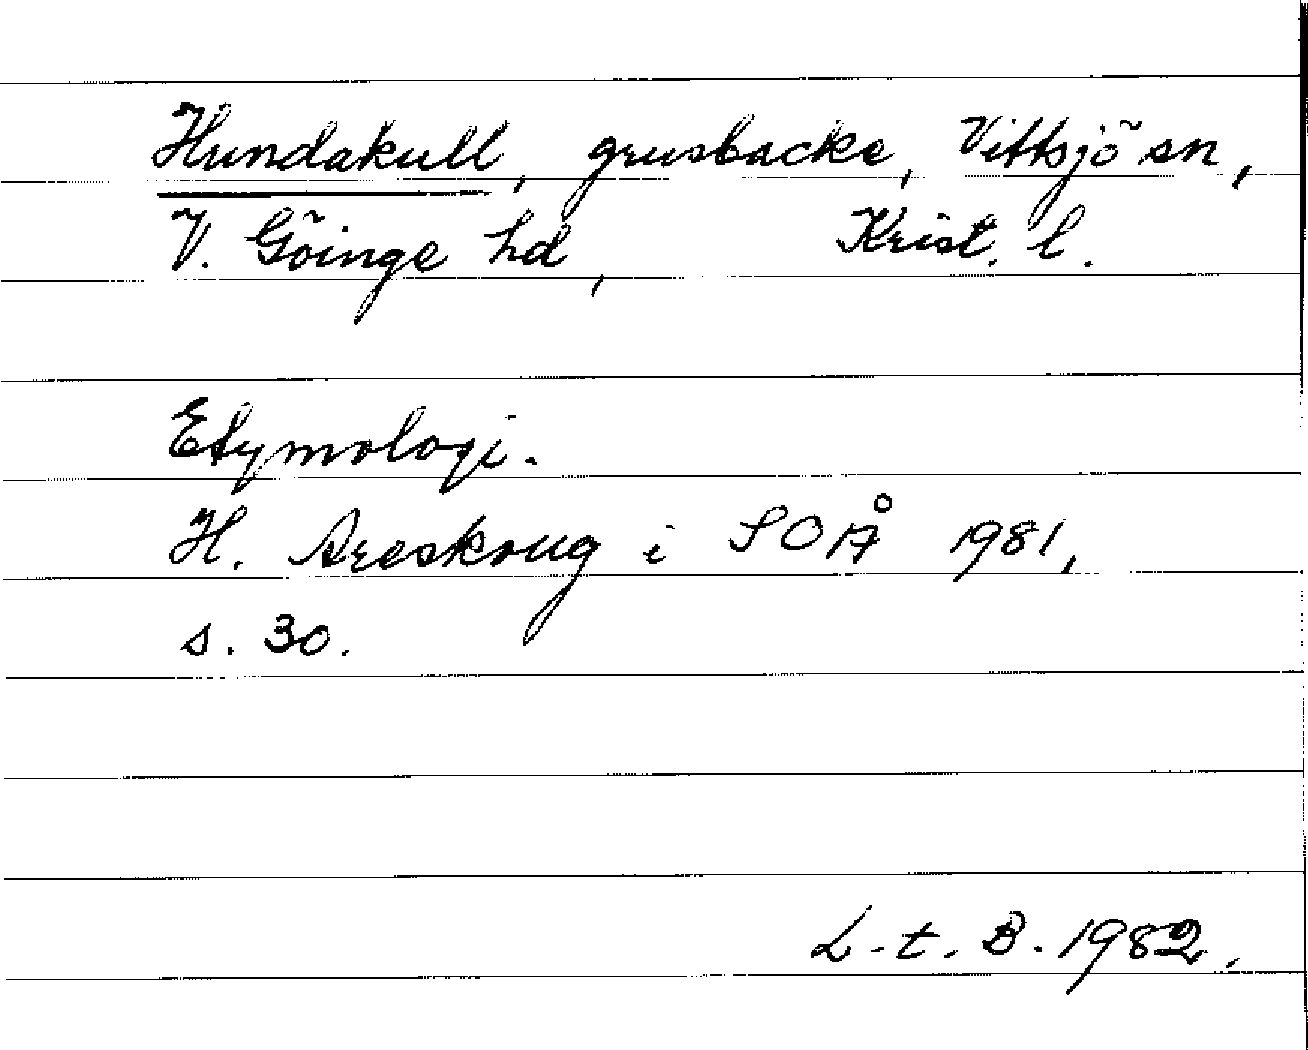 Hundakull, grusbacke, Vittsjö sn,
V. Göinge hd, Krist. l.
Etymologi.
H. Areskoug i SOÅ 1981,
s. 30.
L. t. B. 1982.